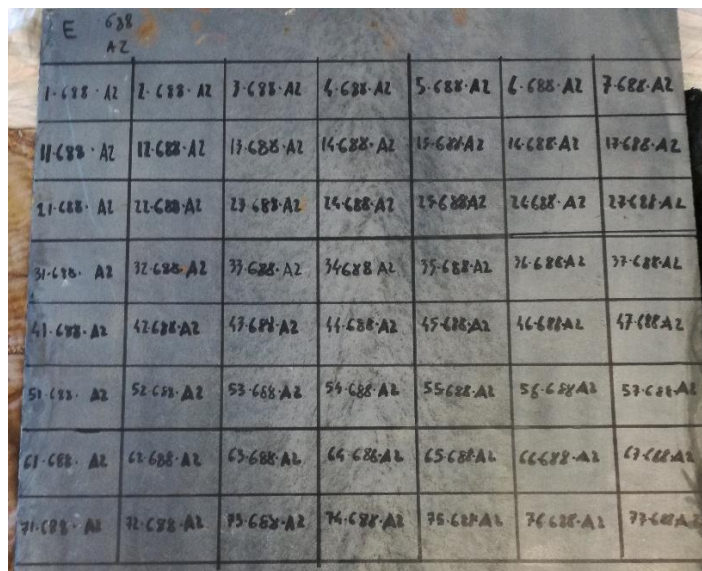 E 688
A2
1·688·A2 2·688·A2 3·688·A2 4·688·A2 5·688·A2 6·688·A2 7·688·A2
11·688·A2 12·688·A2 13·688·A2 14·688·A2 15·688·A2 16·688·A2 17·688·A2
21·688·A2 22·688·A2 23·688·A2 24·688·A2 25·688A2 26·688·A2 27·688·A2
31·688·A2 32·688·A2 33·688·A2 34688A2 35·688·A2 36·688A2 37·688·A2
41·688·A2 42·688·A2 43·688·A2 44·688·A2 45·688·A2 46·688A2 47·688A2
51·688·A2 52·688·A2 53·688·A2 54·688·A2 55·688·A2 56·688A2 57·688·A2
61·688·A2 62·688·A2 63·688·A2 64·688·A2 65·688·A2 66·688·A2 67·688·A2
71·688·A2 72·688·A2 73·688·A2 74·688·A2 75·688·A2 76·688·A2 77·688·A2